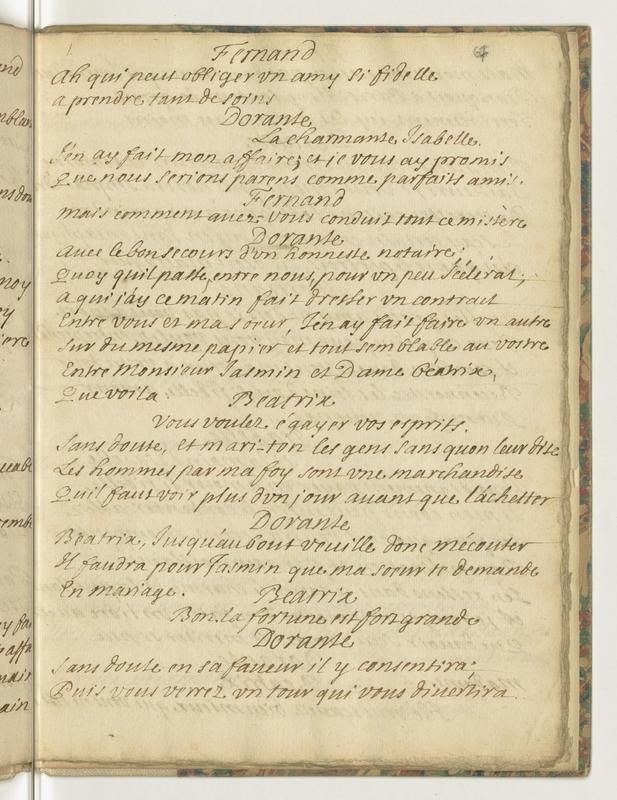 64
Fernand
Ah qui peut obliger vn amy si fidelle
a prendre tant de soins
Dorante
La charmante Isabelle.
J'en ay fait mon affaire; et ie vous ay promis
Que nous serions parens comme parfaits amis.
Fernand
mais comment auez-vous conduit tout ce mistère
Dorante
auec le bon secours d'vn honneste notaire;
Quoy qu'il passe, entre nous, pour vn peu scélérat;
a qui j'ay ce matin fait dresser vn contract
Entre vous et ma soeur, J'en ay fait faire vn autre
sur du mesme papier et tout semblable au vostre
Entre Monsieur Jasmin et Dame Béatrix,
Que voila.
Beatrix
Vous voulez égayer vos esprits.
sans doute, et mari-t'on les gens sans quon leur dise
Les hommes par ma foy sont vne marchandise
Qu'il faut voir plus d'vn jour auant que l'achetter
Dorante
Béatrix, Jusqu'au bout veuille donc m'écouter
Il faudra pour Jasmin que ma soeur te demande
En mariage.
Beatrix
Bon. la fortune est fort grande
Dorante
sans doute en sa faueur il y consentira;
Puis vous verrez vn tour qui vous diuertira